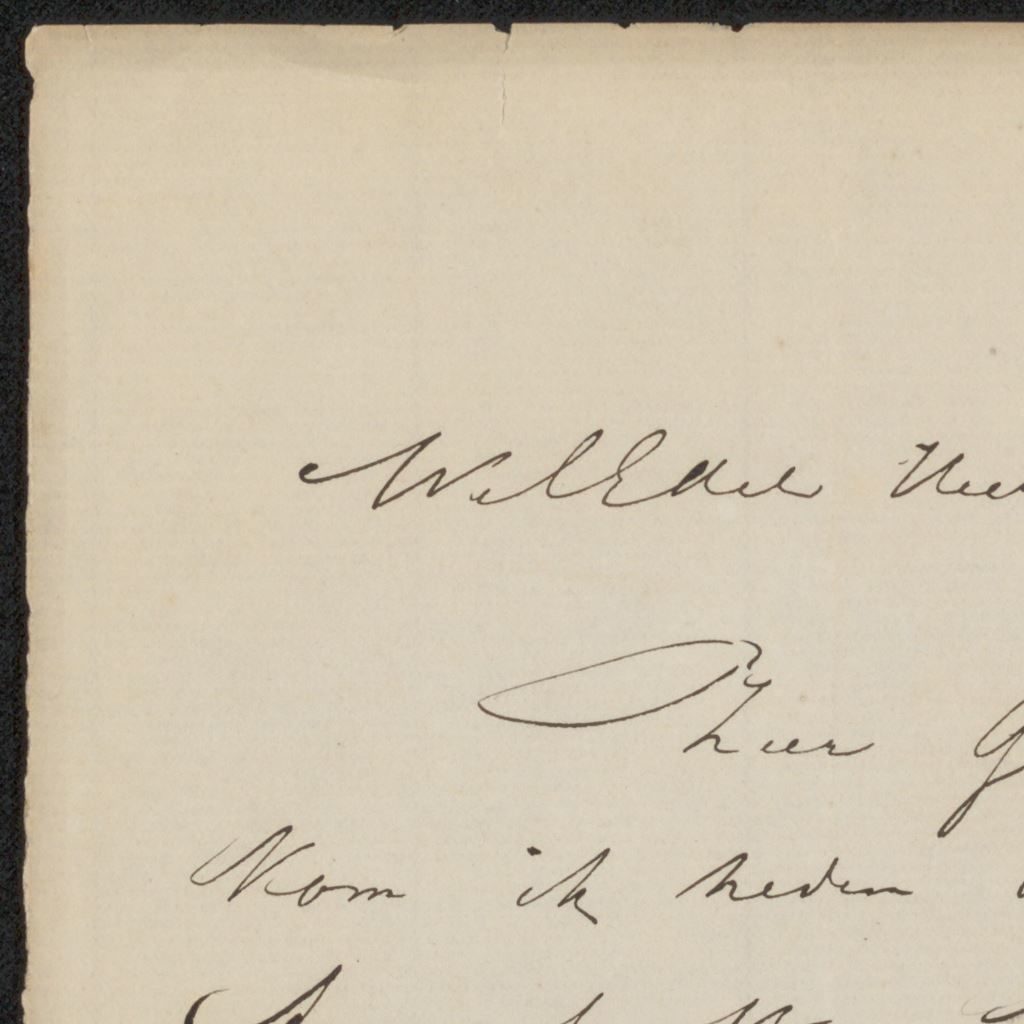 WelEdele Heer
Zeer G
Kom ik heden